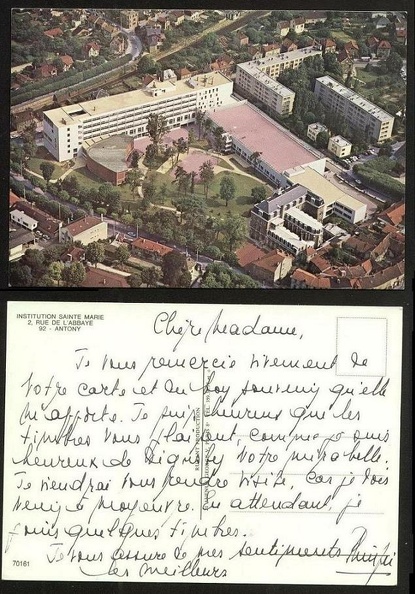 INSTITUTION SAINTE MARIE
2, RUE DE L'ABBAYE
92 - ANTONY
Chère Madame,
Je vous remercie vivement de
votre carte et du bon souvenir qu'elle
m'apporte. Je suis heureux que les
timbres vous plaisent, comme je suis
heureux de votre mirabelle.
Je viendrai vous rendre visite, car je dois
venir à Moyeuvre. En attendant, je
joins quelques timbres.
Je vous assure de mes sentiments
les meilleurs
70161